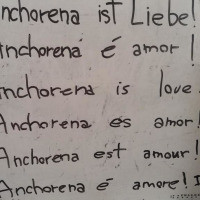 nchorena ist Liebe!
nchorena é amor!
nchorena is love
Anchorena es amor!
Anchorena est amour!
Anchorena é amore! I